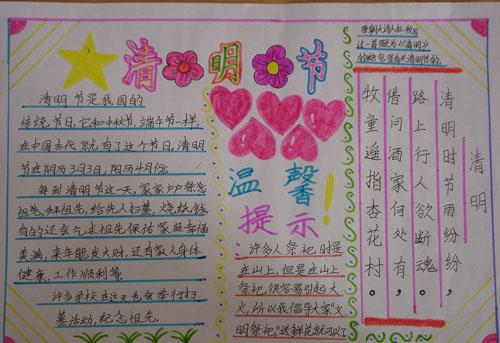 清明节
清明节是我国的
传统节日,它和中秋节、端午节一样
在中国古代就有了这个节日,清明
节在阴历3月3日,阳历4月份.
每到清明节这一天,家家户户祭念
祖先,拜祖先,给先人扫墓,烧纸钱,
有的还会乞求祖先保佑家庭幸福
美满,来年能发大财,还有家人身体
健康,工作顺利等.
许多学校在这天也会举行扫
墓活动,纪念祖先.
温馨
提示!
许多人祭祀时是
在山上,但是在山上
祭祀,很容易引起火
灾,所以我倡导大家"文
明祭祀"送鲜花就可以了
大诗人杜牧写
过一首题为《清明》
的绝句,是有关清明节的.
清明
清明时节雨纷纷,
路上行人欲断魂。
借问酒家何处有,
牧童遥指杏花村。